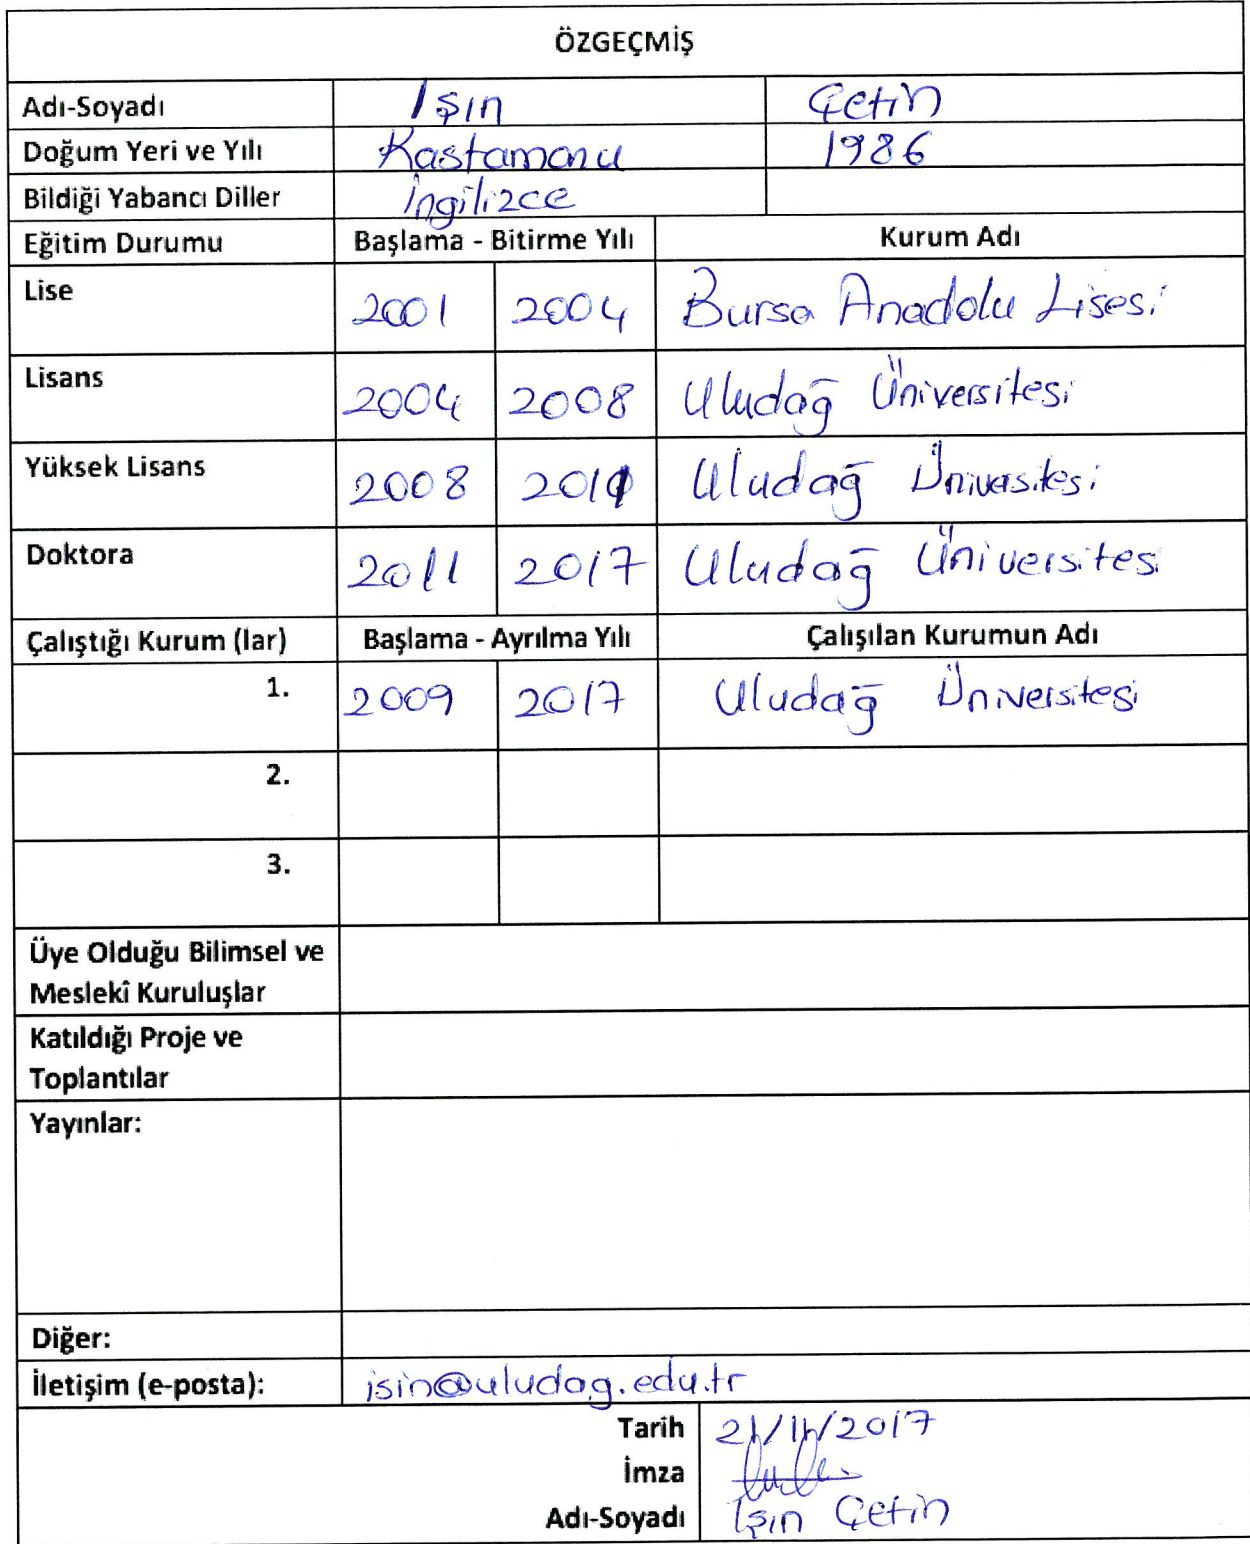 ÖZGEÇMİŞ
Adı-Soyadı Işın Çetin
Doğum Yeri ve Yılı Kastamonu 1986
Bildiği Yabancı Diller İngilizce
Eğitim Durumu Başlama - Bitirme Yılı Kurum Adı
Lise 2001 2004 Bursa Anadolu Lisesi
Lisans 2004 2008 Uludağ Üniversitesi
Yüksek Lisans 2008 2011 Uludağ Üniversitesi
Doktora 2011 2017 Uludağ Üniversitesi
Çalıştığı Kurum (lar) Başlama - Ayrılma Yılı Çalışılan Kurumun Adı
1. 2009 2017 Uludağ Üniversitesi
2.
3.
Üye Olduğu Bilimsel ve
Meslekî Kuruluşlar
Katıldığı Proje ve
Toplantılar
Yayınlar:
Diğer:
İletişim (e-posta): isin@uludag.edu.tr
Tarih 21/11/2017
İmza
Adı-Soyadı Işın Çetin